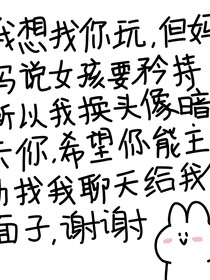 我想找你玩,但妈
妈说女孩要矜持
所以我换头像暗
示你,希望你能主
动找我聊天给我
面子,谢谢